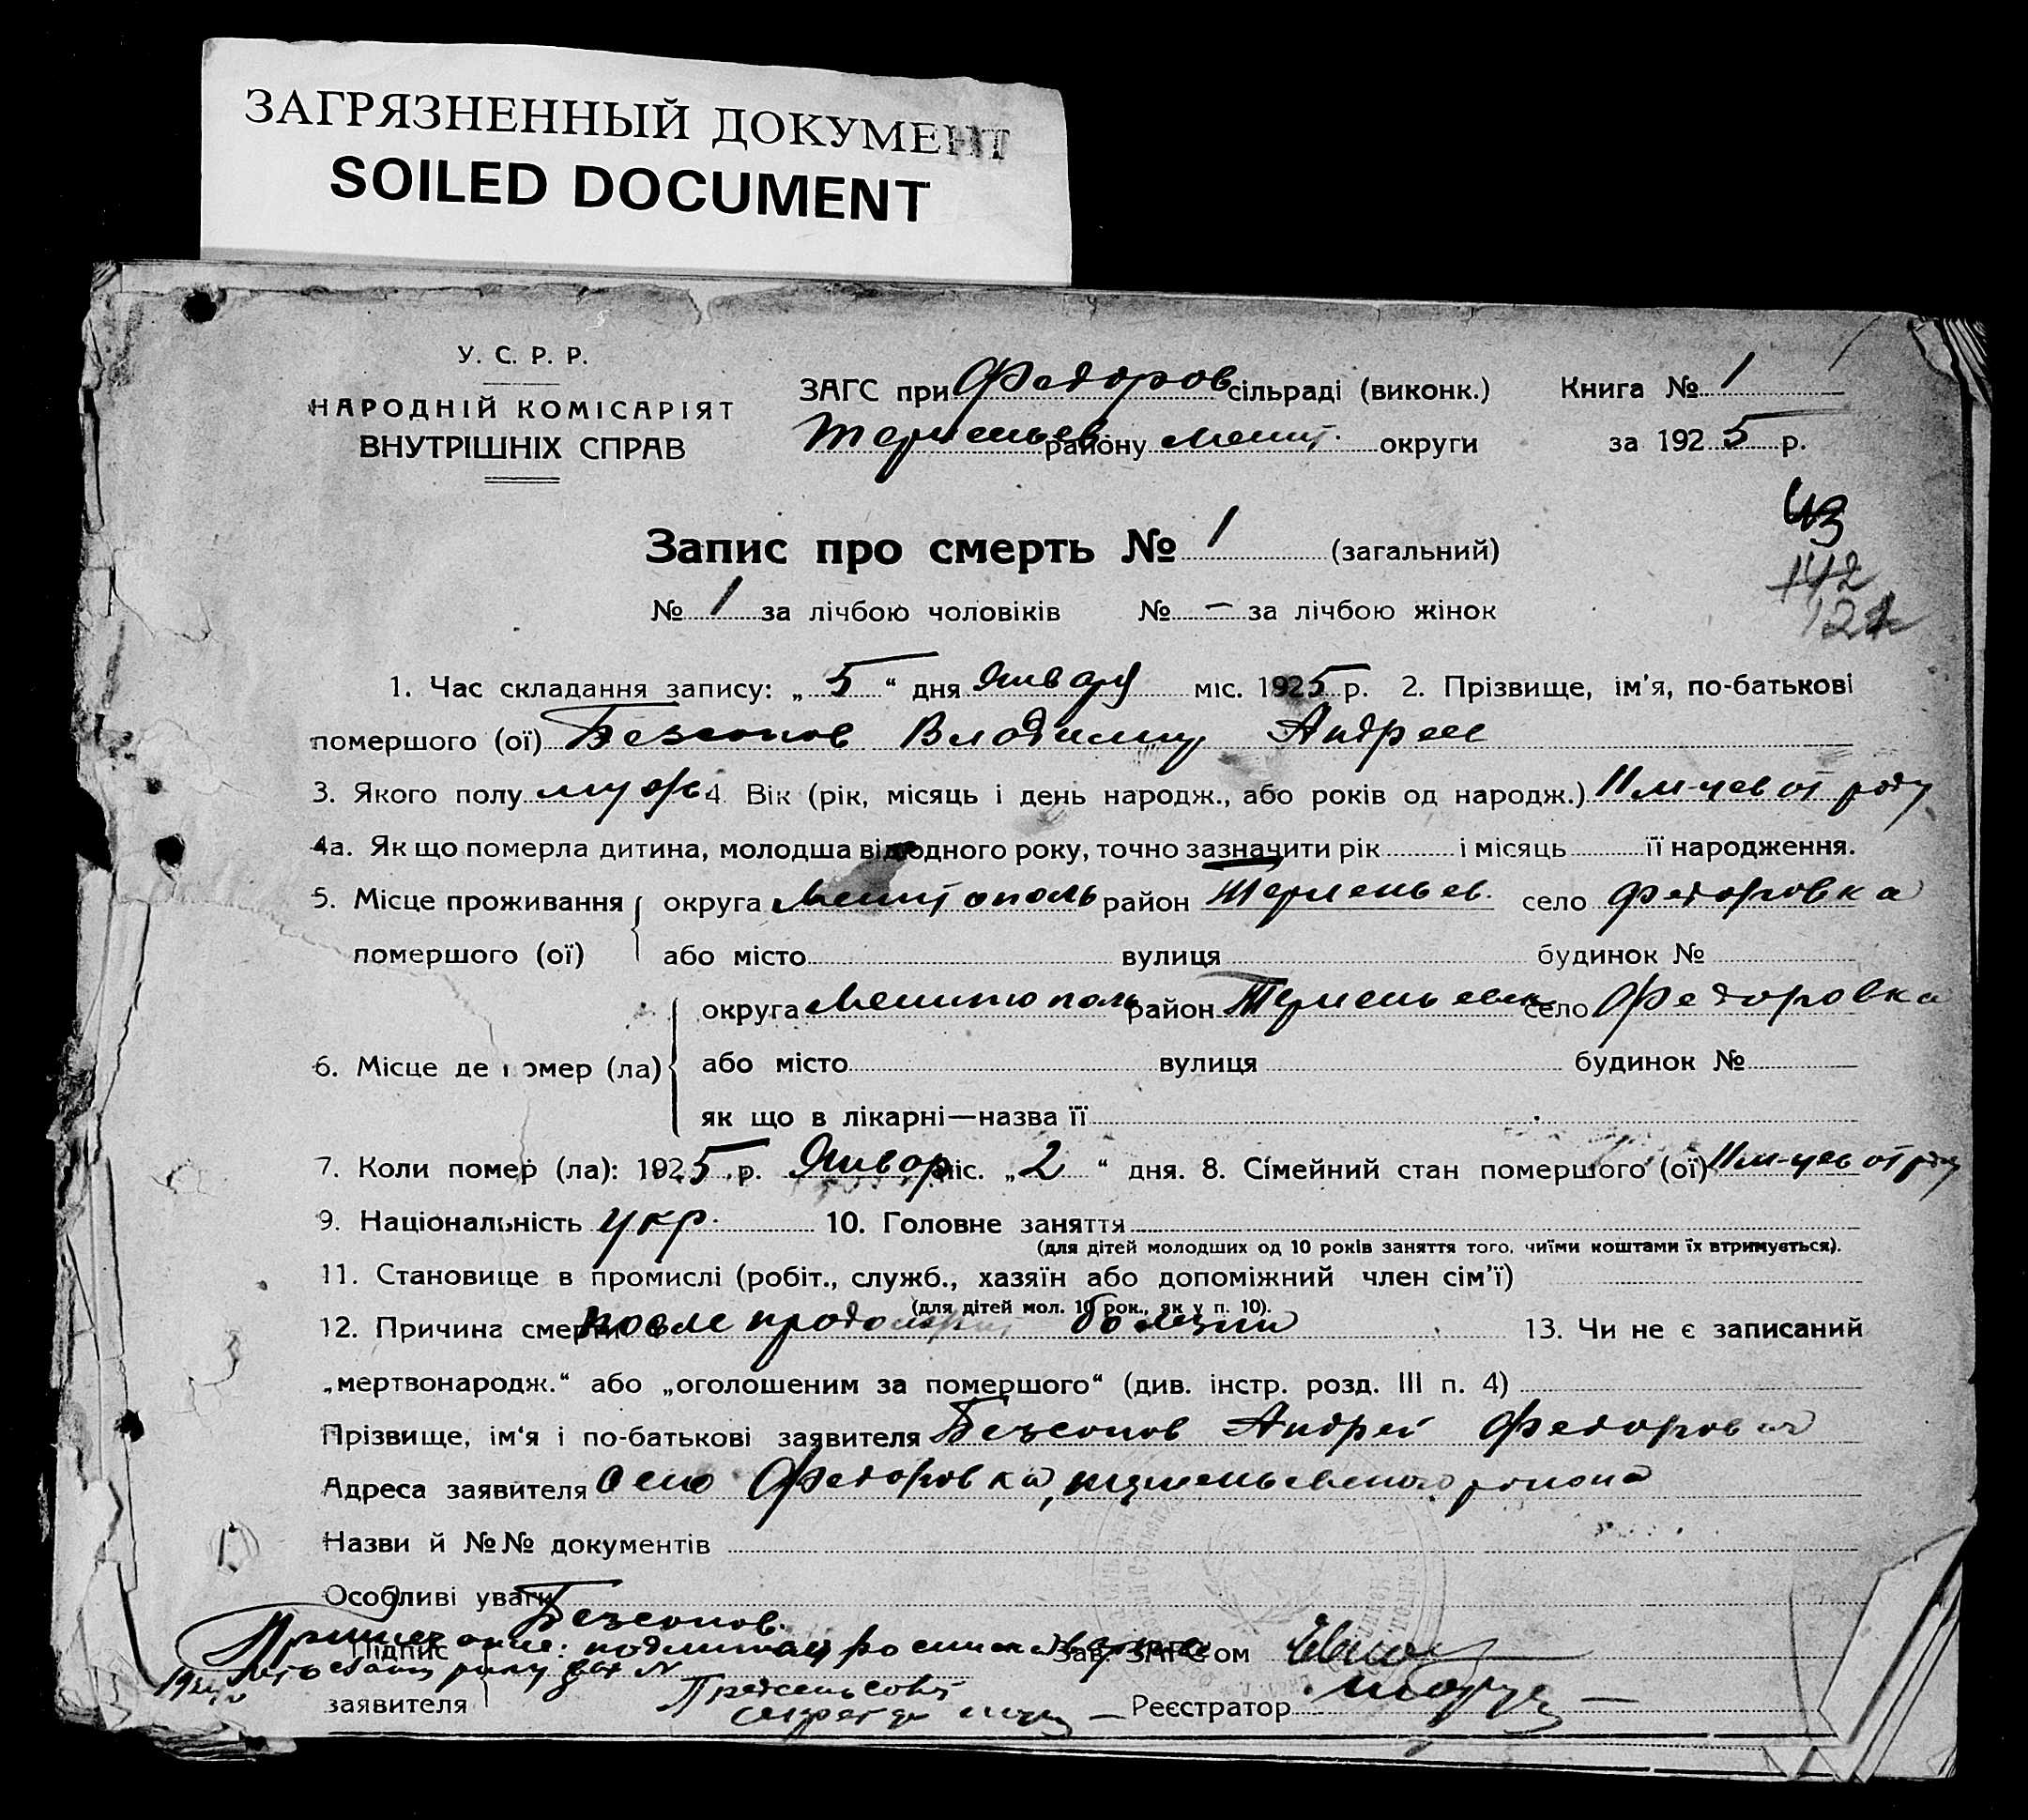 ЗАГРЯЗНЕННЫЙ ДОКУМЕНТ
SOILED DOCUMENT
У. С. Р. Р.
НАРОДНІЙ КОМІСАРІЯТ
ВНУТРІШНІХ СПРАВ
ЗАГС при Федоров сільраді (виконк.)
району Мелит. округи
Книга № 1
за 1925 р.
43
142
Запис про смерть № 1 (загальний)
№ 1 за лічбою чоловіків № — за лічбою жінок
1. Час складання запису: „ 5 “ дня Январ міс. 1925 р. 2. Прізвище, ім'я, по-батькові
помершого (ої) Безсонов Владимир Андрее
3. Якого полу муж 4. Вік (рік, місяць і день народж., або років од народж.) 11 м-цев от роду
4а. Як що померла дитина, молодша від одного року, точно зазначити рік і місяць її народження.
5. Місце проживання помершого (ої) округа Мелитополь район село Федоровка
або місто вулиця будинок №
6. Місце де помер (ла) округа Мелитополь район село Федоровка
або місто вулиця будинок №
як що в лікарні—назва її
7. Коли помер (ла): 1925 р. Январ міс. „ 2 “ дня. 8. Сімейний стан помершого (ої) 11 м-цев от роду
9. Національність укр. 10. Головне заняття
(для дітей молодших од 10 років заняття того, чиїми коштами їх втримується).
11. Становище в промислі (робіт., служб., хазяїн або допоміжний член сім'ї)
(для дітей мол. 10 рок., як у п. 10).
12. Причина смерти после продолжит болезни 13. Чи не є записаний
„мертвонародж.“ або „оголошеним за помершого“ (див. інстр. розд. III п. 4)
Прізвище, ім'я і по-батькові заявителя Безсонов Андрей Федорович
Адреса заявителя Село Федоровка, района
Назви й №№ документів
Особливі уваги
Безсонов.
Підпис Примечание: Зав. ЗАГС'ом
Предсельсовет
заявителя Секретарь Реєстратор